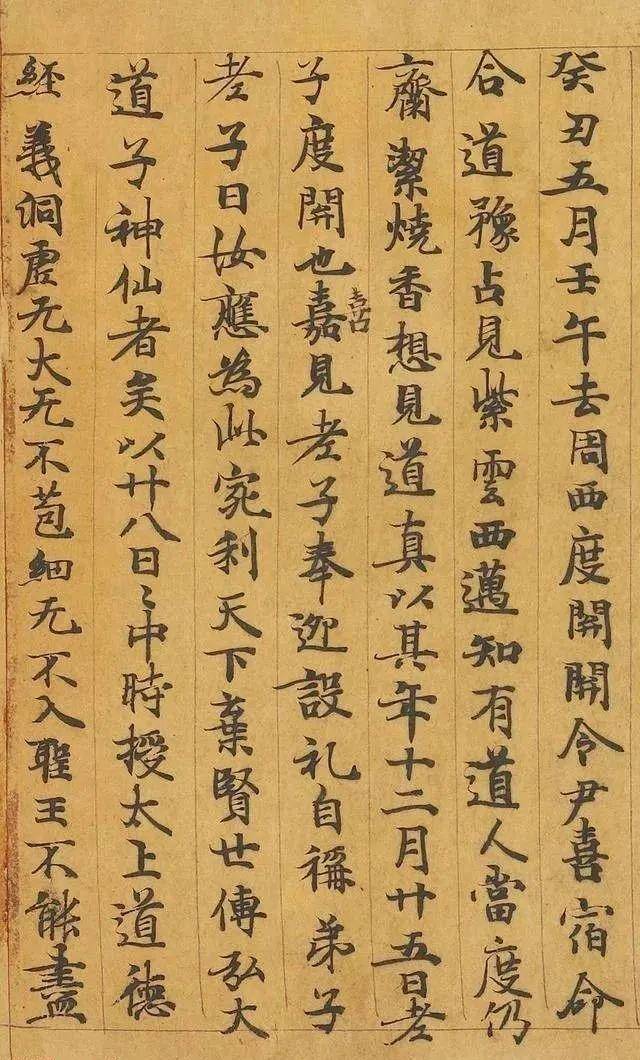 癸丑五月壬午去周西度関関令尹喜宿命
合道豫占見紫雲西邁知有道人當度仍
齋潔燒香想見道真以其年十二月廿五日老
子度関也嘉喜見老子奉迎設礼自稱弟子
老子曰汝應為此宛利天下棄賢世傳弘大
道子神仙者矣以廿八日〻中時授太上道德
經義洞虛无大无不苞細无不入聖王不能盡